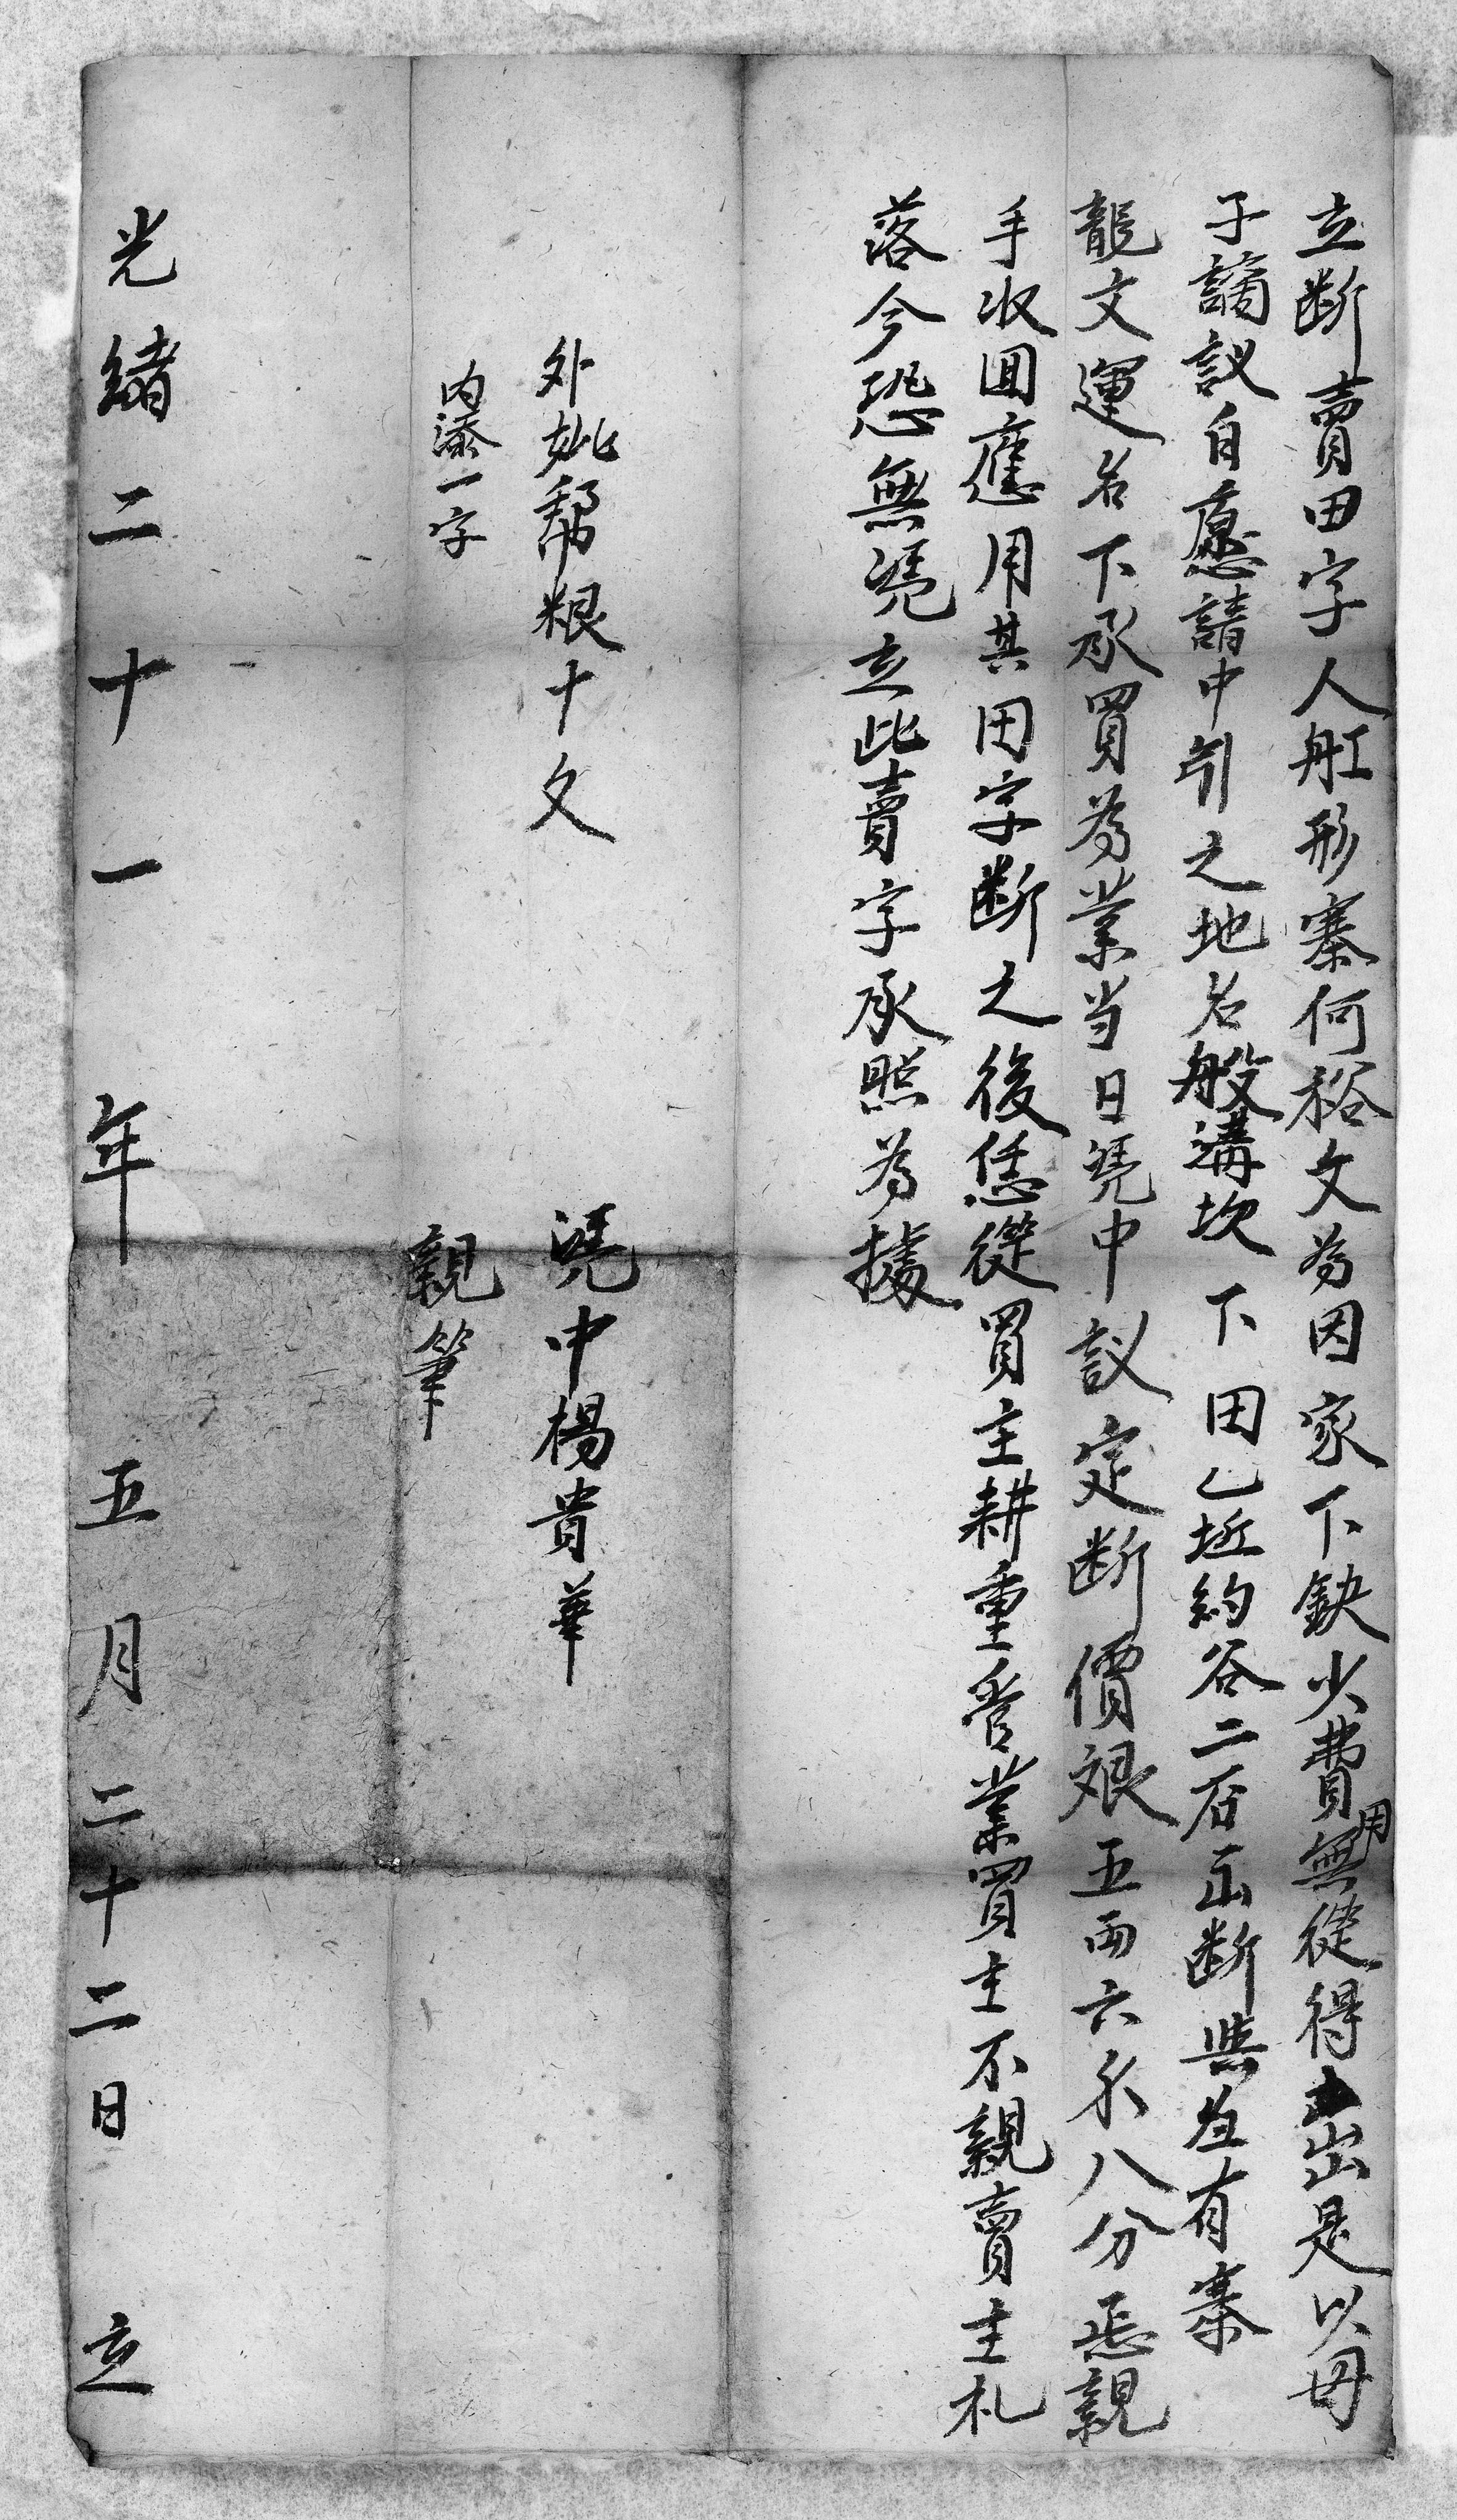 立断賣田字人舡形寨何裕文為因家下缺少費用無從得出是以母
子謫議自愿請中引之地名般溝坎下田乙坵約谷二石出断與並有寨
龍文運名下承買為業当日凴中議定断價艮五両六分八分恁親
手收囬應用其田字断之後恁從買主耕重管業買主不親賣主札
落今恐無凴立此賣字承照為據
外姚幇粮十文
凴中楊貴華
内添一字
親筆
光緒二十一年五月二十二日立